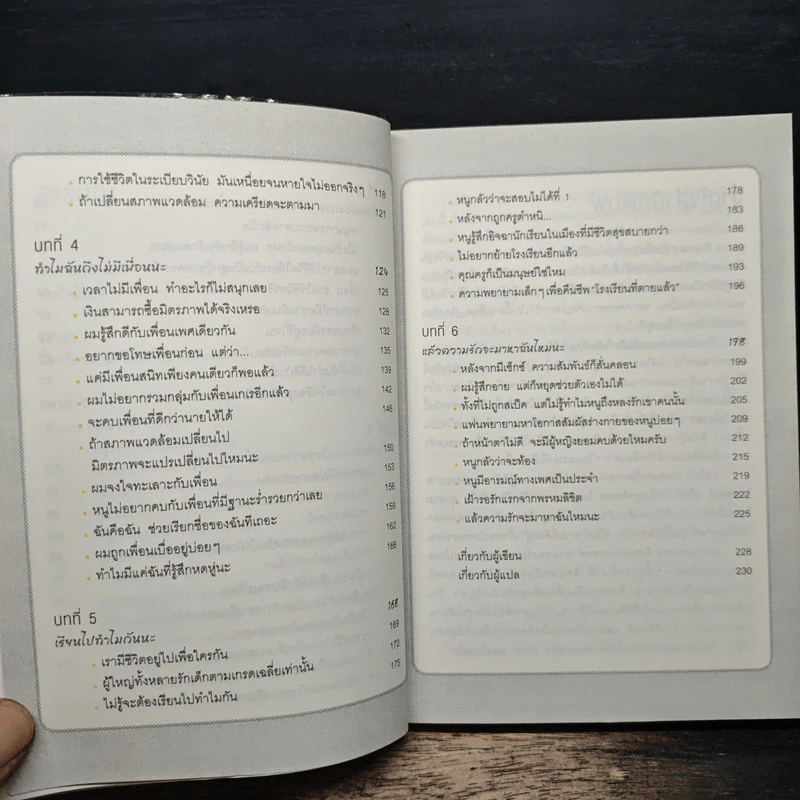 • การใช้ชีวิตในระเบียบวินัย มันเหนื่อยจนหายใจไม่ออกจริงๆ 118
• ถ้าเปลี่ยนสภาพแวดล้อม ความเครียดจะตามมา 121
บทที่ 4
ทำไมฉันถึงไม่มีเพื่อนนะ 124
• เวลาไม่มีเพื่อน ทำอะไรก็ไม่สนุกเลย 125
• เงินสามารถซื้อมิตรภาพได้จริงเหรอ 128
• ผมรู้สึกดีกับเพื่อนเพศเดียวกัน 132
• อยากขอโทษเพื่อนก่อน แต่ว่า... 135
• แค่มีเพื่อนสนิทเพียงคนเดียวก็พอแล้ว 139
• ผมไม่อยากรวมกลุ่มกับเพื่อนเกเรอีกแล้ว 142
• จะคบเพื่อนที่ดีกว่านายให้ได้ 146
• ถ้าสภาพแวดล้อมเปลี่ยนไป
มิตรภาพจะแปรเปลี่ยนไปไหมนะ 150
• ผมจงใจทะเลาะกับเพื่อน 153
• หนูไม่อยากคบกับเพื่อนที่มีฐานะร่ำรวยกว่าเลย 156
• ฉันคือฉัน ช่วยเรียกชื่อของฉันทีเถอะ 159
• ผมถูกเพื่อนเบื่ออยู่บ่อยๆ 162
• ทำไมมีแค่ฉันที่รู้สึกหดหู่นะ 166
บทที่ 5
เรียนไปทำไมกันนะ 168
• เรามีชีวิตอยู่ไปเพื่อใครกัน 169
• ผู้ใหญ่ทั้งหลายรักเด็กตามเกรดเฉลี่ยเท่านั้น 172
• ไม่รู้จะต้องเรียนไปทำไมกัน 175
• หนูกลัวว่าจะสอบไม่ได้ที่ 1 178
• หลังจากถูกครูตำหนิ... 183
• หนูรู้สึกอิจฉานักเรียนในเมืองที่มีชีวิตสุขสบายกว่า 186
• ไม่อยากย้ายโรงเรียนอีกแล้ว 189
• คุณครูก็เป็นมนุษย์ใช่ไหม 193
• ความพยายามเล็กๆ เพื่อคืนชีพ “โรงเรียนที่ตายแล้ว” 196
บทที่ 6
แล้วความรักจะมาหาฉันไหมนะ 198
• หลังจากมีเซ็กซ์ ความสัมพันธ์ก็สั่นคลอน 199
• ผมรู้สึกอาย แต่ก็หยุดช่วยตัวเองไม่ได้ 202
• ทั้งที่ไม่ถูกสเป็ค แต่ไม่รู้ทำไมหนูถึงหลงรักเขาคนนั้น 205
• แฟนพยายามหาโอกาสสัมผัสร่างกายของหนูบ่อยๆ 209
• ถ้าหน้าตาไม่ดี จะมีผู้หญิงยอมคบด้วยไหมครับ 212
• หนูกลัวว่าจะท้อง 215
• หนูมีอารมณ์ทางเพศเป็นประจำ 219
• เฝ้ารอรักแรกจากพรหมลิขิต 222
• แล้วความรักจะมาหาฉันไหมนะ 225
เกี่ยวกับผู้เขียน 228
เกี่ยวกับผู้แปล 230